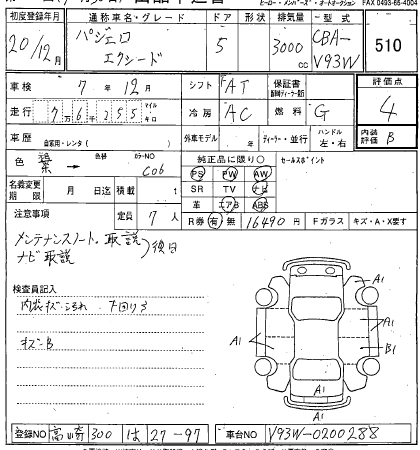 ヒーロー・メンバーズ・オートオークション FAX 0493-65-4004
初度登録年月 通称車名・グレード ドア 形状 排気量 型式
20/12月 パジェロ エクシード 5 3000cc CBA-V93W 510
車検 7年12月 シフト FAT 保証書 評価点
走行 7万6千255 マイル キロ 冷房 AC 燃料 G 4
車歴 自家用・レンタ( ) 外車モデル 年 ディーラー・並行 ハンドル 左・右 内装評価 B
色 紫→ 色替 カラーNO C06 純正品に限り○ セールスポイント
PS PW AW
名義変更期限 月 日迄 積載 t SR TV ナビ
定員 7人 革 エアB ABS
注意事項 R券 有 無 16490円 Fガラス キズ・A・X要す
メンテナンスノート、取説
ナビ取説 )後日
検査員記入
内装キズ・よごれ 下回りサ
キズ・B
A1
A1
A1
A1
B1
A1
A1
登録NO 高崎 300 は 27-97 車台NO V93W-0200288